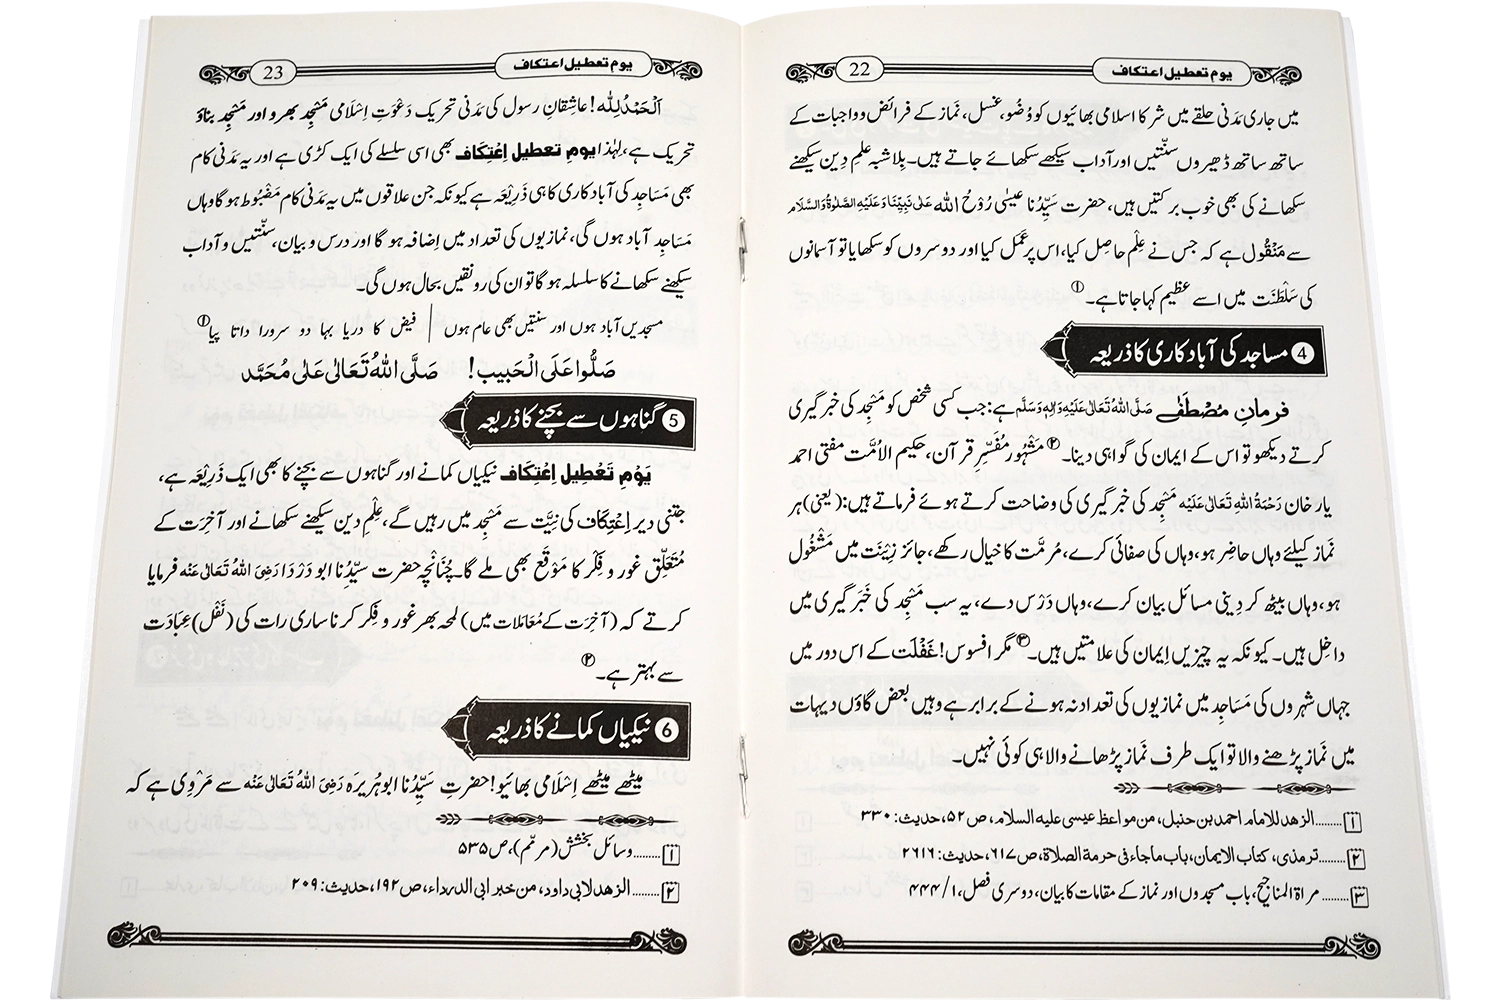 22
یوم تعطیل اعتکاف
میں جاری مَدَنی حلقے میں شرکا اسلامی بھائیوں کو وُضُو، غسل، نَماز کے فرائض و واجبات کے
ساتھ ساتھ ڈھیروں سنّتیں اور آداب سیکھے سکھائے جاتے ہیں۔ بِلاشبہ علمِ دِین سیکھنے
سکھانے کی بھی خوب برکتیں ہیں، حضرت سَیِّدُنا عیسٰی رُوْحُ اللہ عَلٰی نَبِیِّنَا وَعَلَیْہِ الصَّلٰوۃُ وَالسَّلَام
سے مَنْقُول ہے کہ جس نے عِلْم حاصِل کیا، اس پر عَمَل کیا اور دوسروں کو سکھایا تو آسمانوں
کی سَلْطَنَت میں اسے عظیم کہا جاتا ہے۔ ①
4 مساجد کی آباد کاری کا ذریعہ
فرمانِ مُصْطَفٰے صَلَّی اللہُ تَعَالٰی عَلَیْہِ وَاٰلِہٖ وَسَلَّم ہے: جب کسی شخص کو مَسْجِد کی خبر گیری
کرتے دیکھو تو اس کے ایمان کی گواہی دینا۔ ② مَشْہُور مُفَسِّرِ قرآن، حکیم الاُمَّت مفتی احمد
یار خان رَحْمَۃُ اللہِ تَعَالٰی عَلَیْہ مَسْجِد کی خبر گیری کی وضاحت کرتے ہوئے فرماتے ہیں: (یعنی) ہر
نَماز کیلئے وہاں حاضِر ہو، وہاں کی صفائی کرے، مُرمَّت کا خیال رکھے، جائز زِیْنَت میں مَشْغُول
ہو، وہاں بیٹھ کر دِینی مسائل بیان کرے، وہاں دَرْس دے، یہ سب مَسْجِد کی خَبَر گیری میں
داخِل ہیں۔ کیونکہ یہ چیزیں اِیمان کی علامتیں ہیں۔ ③ مگر افسوس! غَفْلَت کے اس دور میں
جہاں شہروں کی مَسَاجِد میں نمازیوں کی تعداد نہ ہونے کے برابر ہے وہیں بعض گاؤں دیہات
میں نَماز پڑھنے والا تو ایک طرف نَماز پڑھانے والا ہی کوئی نہیں۔
۱......الزهد للامام احمد بن حنبل، من مواعظ عیسی علیه السلام، ص ۵۲، حدیث: ۳۳۰
۲......ترمذی، کتاب الایمان، باب ماجاء فی حرمة الصلاة، ص ۶۱۷، حدیث: ۲۶۱۶
۳......مراة المناجیح، باب مسجدوں اور نماز کے مقامات کا بیان، دوسری فصل، ۱/ ۴۴۴
23
یوم تعطیل اعتکاف
اَلْحَمْدُلِلّٰہ! عاشقانِ رسول کی مَدَنی تحریک دَعْوَتِ اِسْلَامی مَسْجِد بھرو اور مَسْجِد بناؤ
تحریک ہے، لہٰذا یومِ تعطیل اِعْتِکَاف بھی اسی سلسلے کی ایک کڑی ہے اور یہ مَدَنی کام
بھی مَسَاجِد کی آباد کاری کا ہی ذَرِیْعَہ ہے کیونکہ جن علاقوں میں یہ مَدَنی کام مَضْبُوط ہو گا وہاں
مَسَاجِد آباد ہوں گی، نمازیوں کی تعداد میں اِضافہ ہو گا اور درس و بیان، سنّتیں و آداب
سیکھنے سکھانے کا سلسلہ ہو گا تو ان کی رونقیں بحال ہوں گی۔
مسجدیں آباد ہوں اور سنتیں بھی عام ہوں | فیض کا دریا بہا دو سرورا داتا پیا ①
صَلُّوا عَلَی الْحَبِیب! صَلَّی اللہُ تَعَالٰی عَلٰی مُحَمَّد
5 گناہوں سے بچنے کا ذریعہ
یَوْمِ تَعْطِیل اِعْتِکَاف نیکیاں کمانے اور گناہوں سے بچنے کا بھی ایک ذَرِیْعَہ ہے،
جتنی دیر اِعْتِکَاف کی نِیَّت سے مَسْجِد میں رہیں گے، عِلْمِ دین سیکھنے سکھانے اور آخِرَت کے
مُتَعَلِّق غور و فِکْر کا مَوْقَع بھی ملے گا۔ چُنَانْچِہ حضرت سَیِّدُنا ابو دَرْدَا رَضِیَ اللہُ تَعَالٰی عَنْہ فرمایا
کرتے کہ (آخِرَت کے مُعَامَلات میں) لمحہ بھر غور و فِکر کرنا ساری رات کی (نَفْل) عِبَادَت
سے بہتر ہے۔ ②
6 نیکیاں کمانے کا ذریعہ
میٹھے میٹھے اِسْلَامی بھائیو! حضرتِ سَیِّدُنا ابوہُریرَہ رَضِیَ اللہُ تَعَالٰی عَنْہ سے مَرْوِی ہے کہ
۱......وسائل بخشش (مرمّم)، ص ۵۳۵
۲......الزهد لابی داود، من خبر ابی الدرداء، ص ۱۹۲، حدیث: ۲۰۹